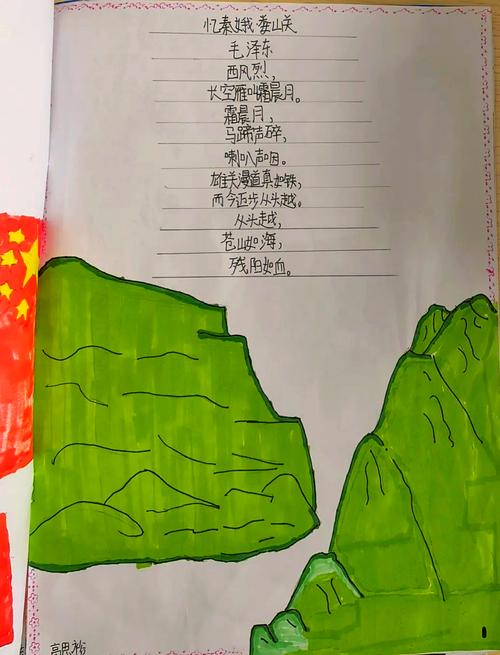 忆秦娥·娄山关
毛泽东
西风烈，
长空雁叫霜晨月。
霜晨月，
马蹄声碎，
喇叭声咽。
雄关漫道真如铁，
而今迈步从头越。
从头越，
苍山如海，
残阳如血。
高思裕